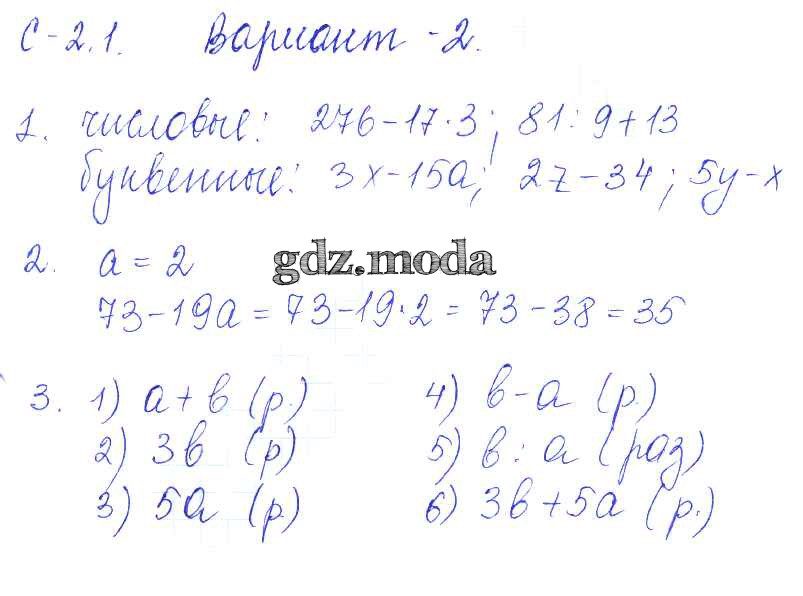 С-2.1. Вариант-2.
1. числовые: 276-17·3; 81:9+13
буквенные: 3x-15a; 2z-34; 5y-x
2. a = 2
gdz.moda
73-19a = 73-19·2 = 73-38 = 35
3. 1) a+b (р.) 4) b-a (р.)
2) 3b (р) 5) b:a (раз)
3) 5a (р.) 6) 3b+5a (р.)